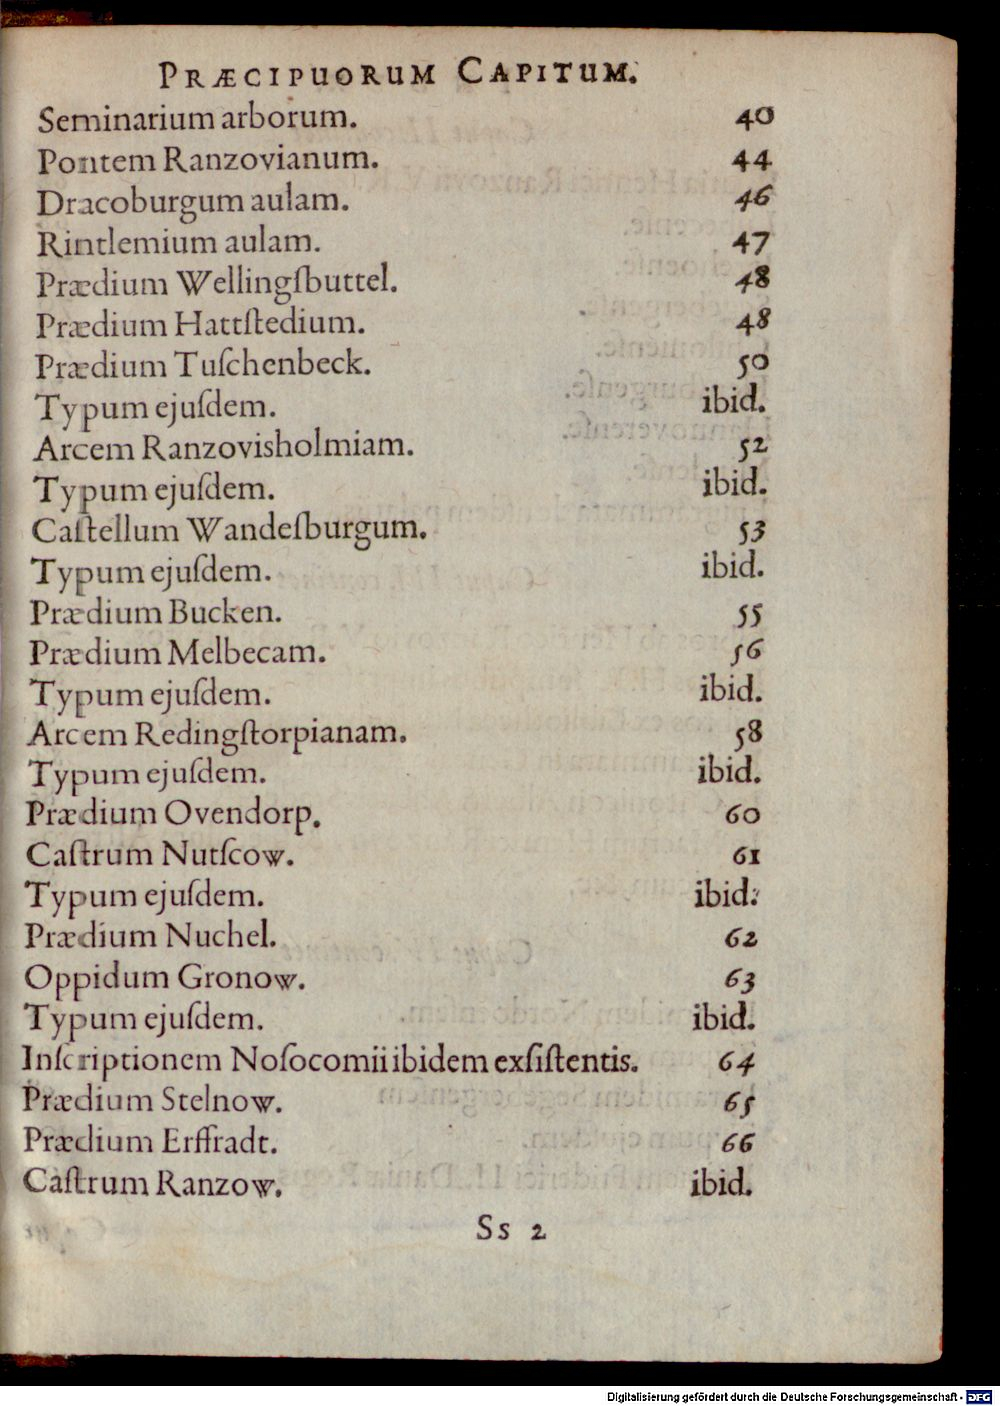 PRÆCIPUORUM CAPITUM.
Seminarium arborum. 40
Pontem Ranzovianum. 44
Dracoburgum aulam. 46
Rintlemium aulam. 47
Prædium Wellingſbuttel. 48
Prædium Hattſtedium. 48
Prædium Tuſchenbeck. 50
Typum ejuſdem. ibid.
Arcem Ranzovisholmiam. 52
Typum ejuſdem. ibid.
Caſtellum Wandeſburgum. 53
Typum ejuſdem. ibid.
Prædium Bucken. 55
Prædium Melbecam. 56
Typum ejuſdem. ibid.
Arcem Redingſtorpianam. 58
Typum ejuſdem. ibid.
Prædium Ovendorp. 60
Caſtrum Nutſcow. 61
Typum ejuſdem. ibid.
Prædium Nuchel. 62
Oppidum Gronow. 63
Typum ejuſdem. ibid.
Inſcriptionem Noſocomii ibidem exſiſtentis. 64
Prædium Stelnow. 65
Prædium Erffradt. 66
Caſtrum Ranzow. ibid.
Ss 2
Digitalisierung gefördert durch die Deutsche Forschungsgemeinschaft - DFG